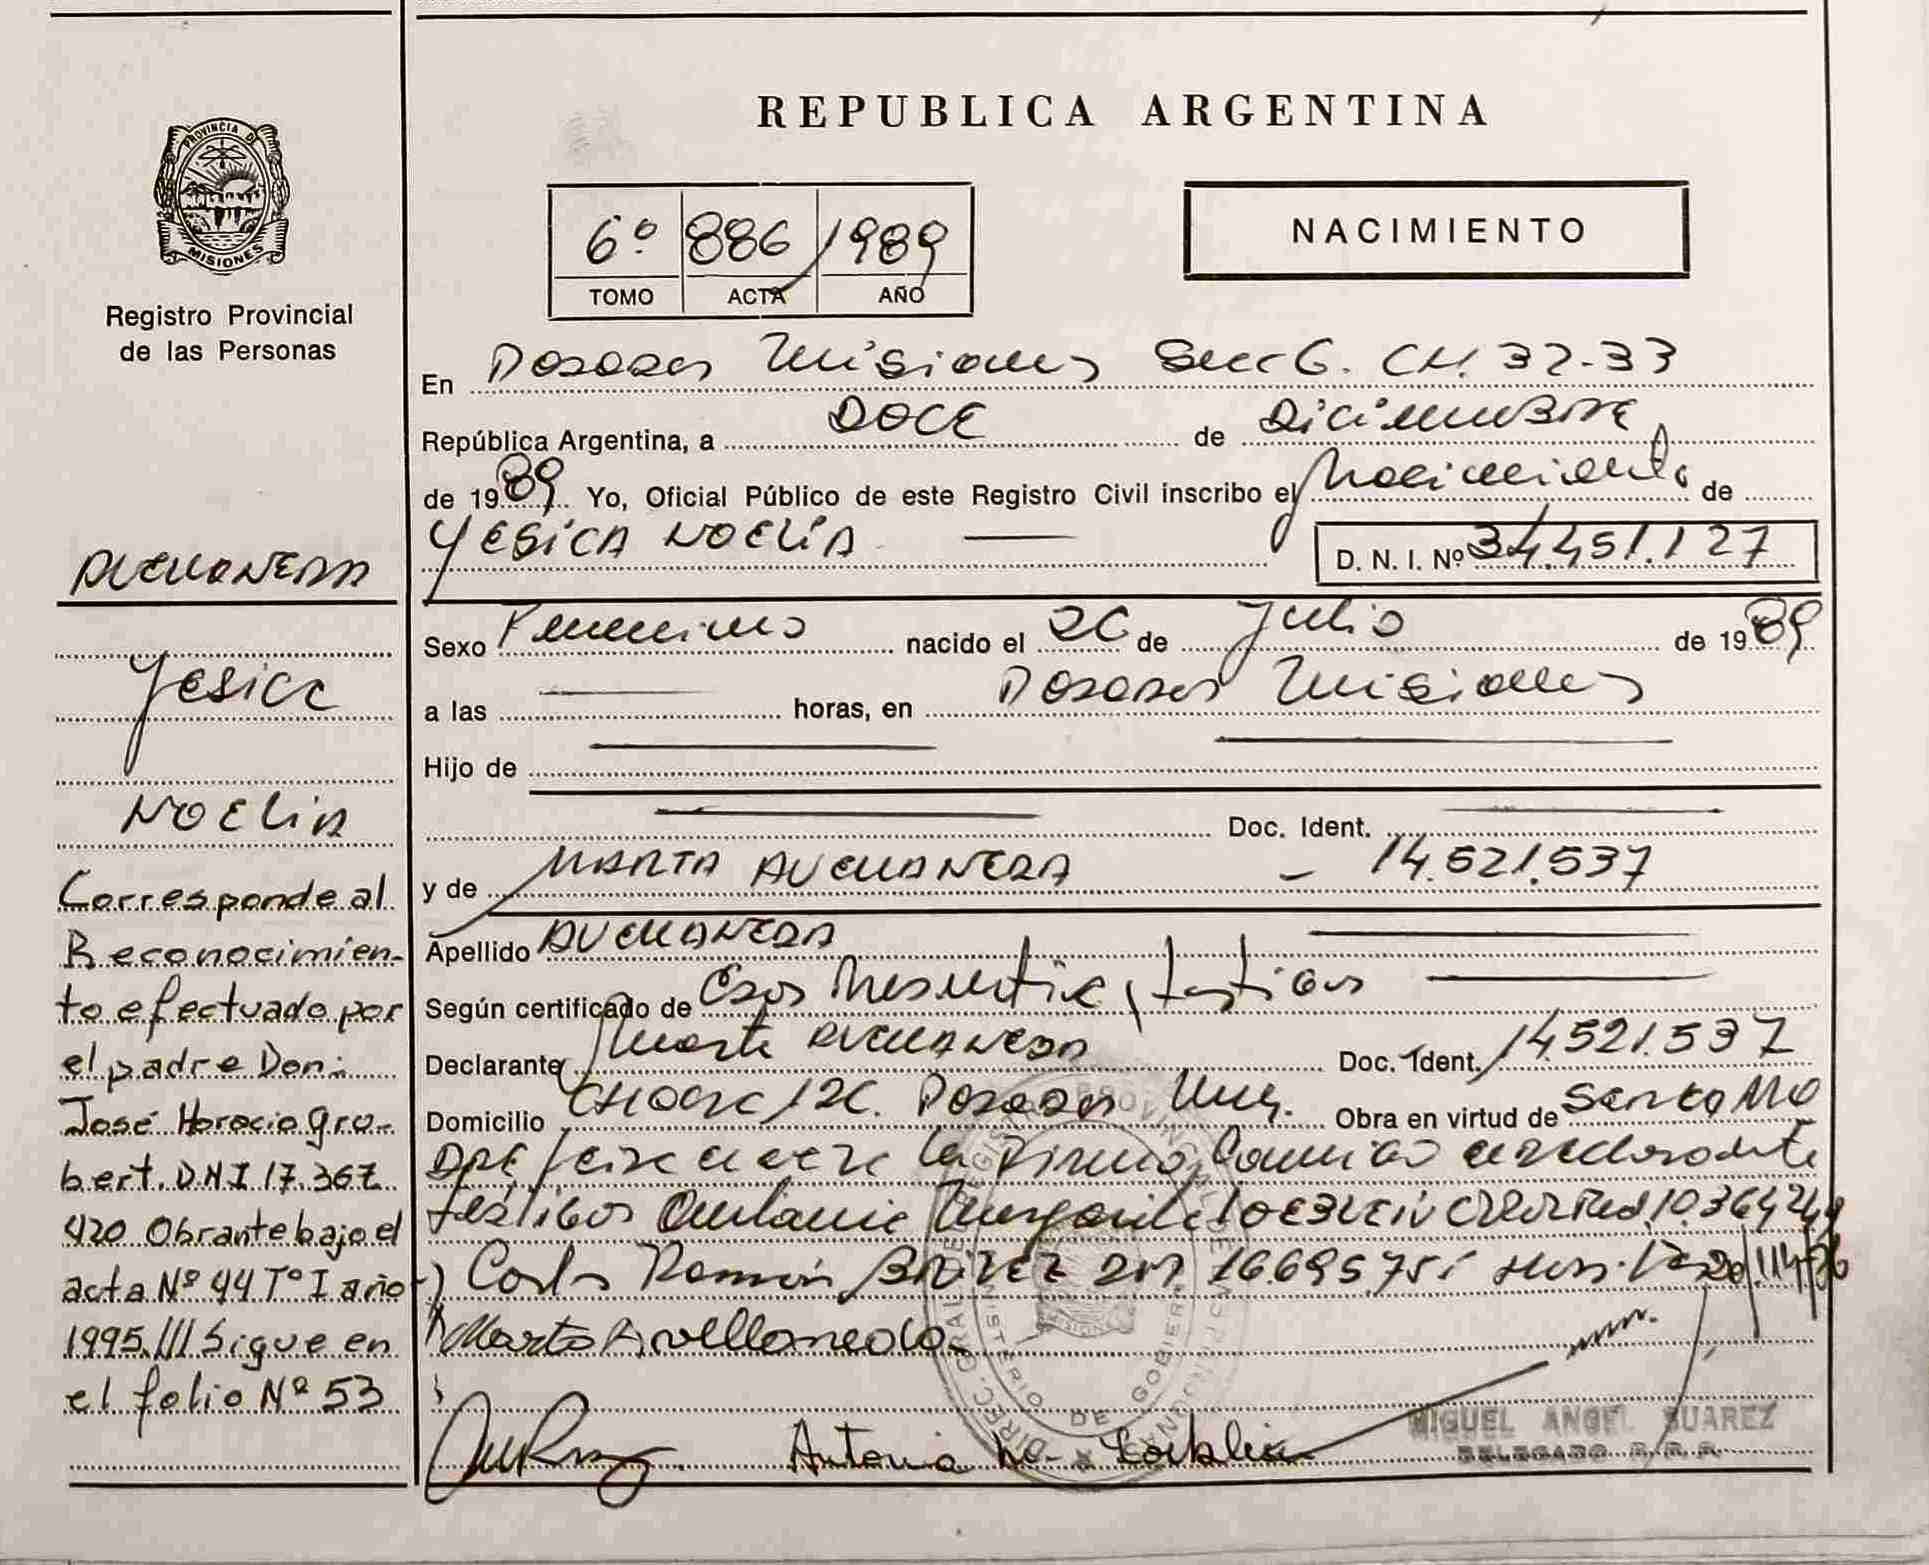 PROVINCIA DE
MISIONES
Registro Provincial
de las Personas
AVELLANEDA
Yesica
NOELIA
Corresponde al
Reconocimien-
to efectuado por
el padre Don:
José Horacio Gro-
bert. DNI 17.367
420 Obrante bajo el
acta Nº 44 Tº I año
1995./// Sigue en
el folio Nº 53
REPUBLICA ARGENTINA
6º 886 1989
TOMO ACTA AÑO
NACIMIENTO
En Posadas Misiones Secc 6. CH. 32-33
República Argentina, a DOCE de Diciembre
de 1989 Yo, Oficial Público de este Registro Civil inscribo el Nacimiento de
YESICA NOELIA D. N. I. Nº 34.451.127
Sexo Femenino nacido el 26 de Julio de 1989
a las horas, en Posadas Misiones
Hijo de
Doc. Ident.
y de MARTA AVELLANEDA - 14.521.537
Apellido AVELLANEDA
Según certificado de testigos
Declarante Marta AVELLANEDA Doc. Ident. 14.521.537
Domicilio Posadas Obra en virtud de
la
testigos
Carlos Ramón 16.695.751
Marta Avellaneda
Antonia
MIGUEL ANGEL SUAREZ
DELEGADO R.P.P.